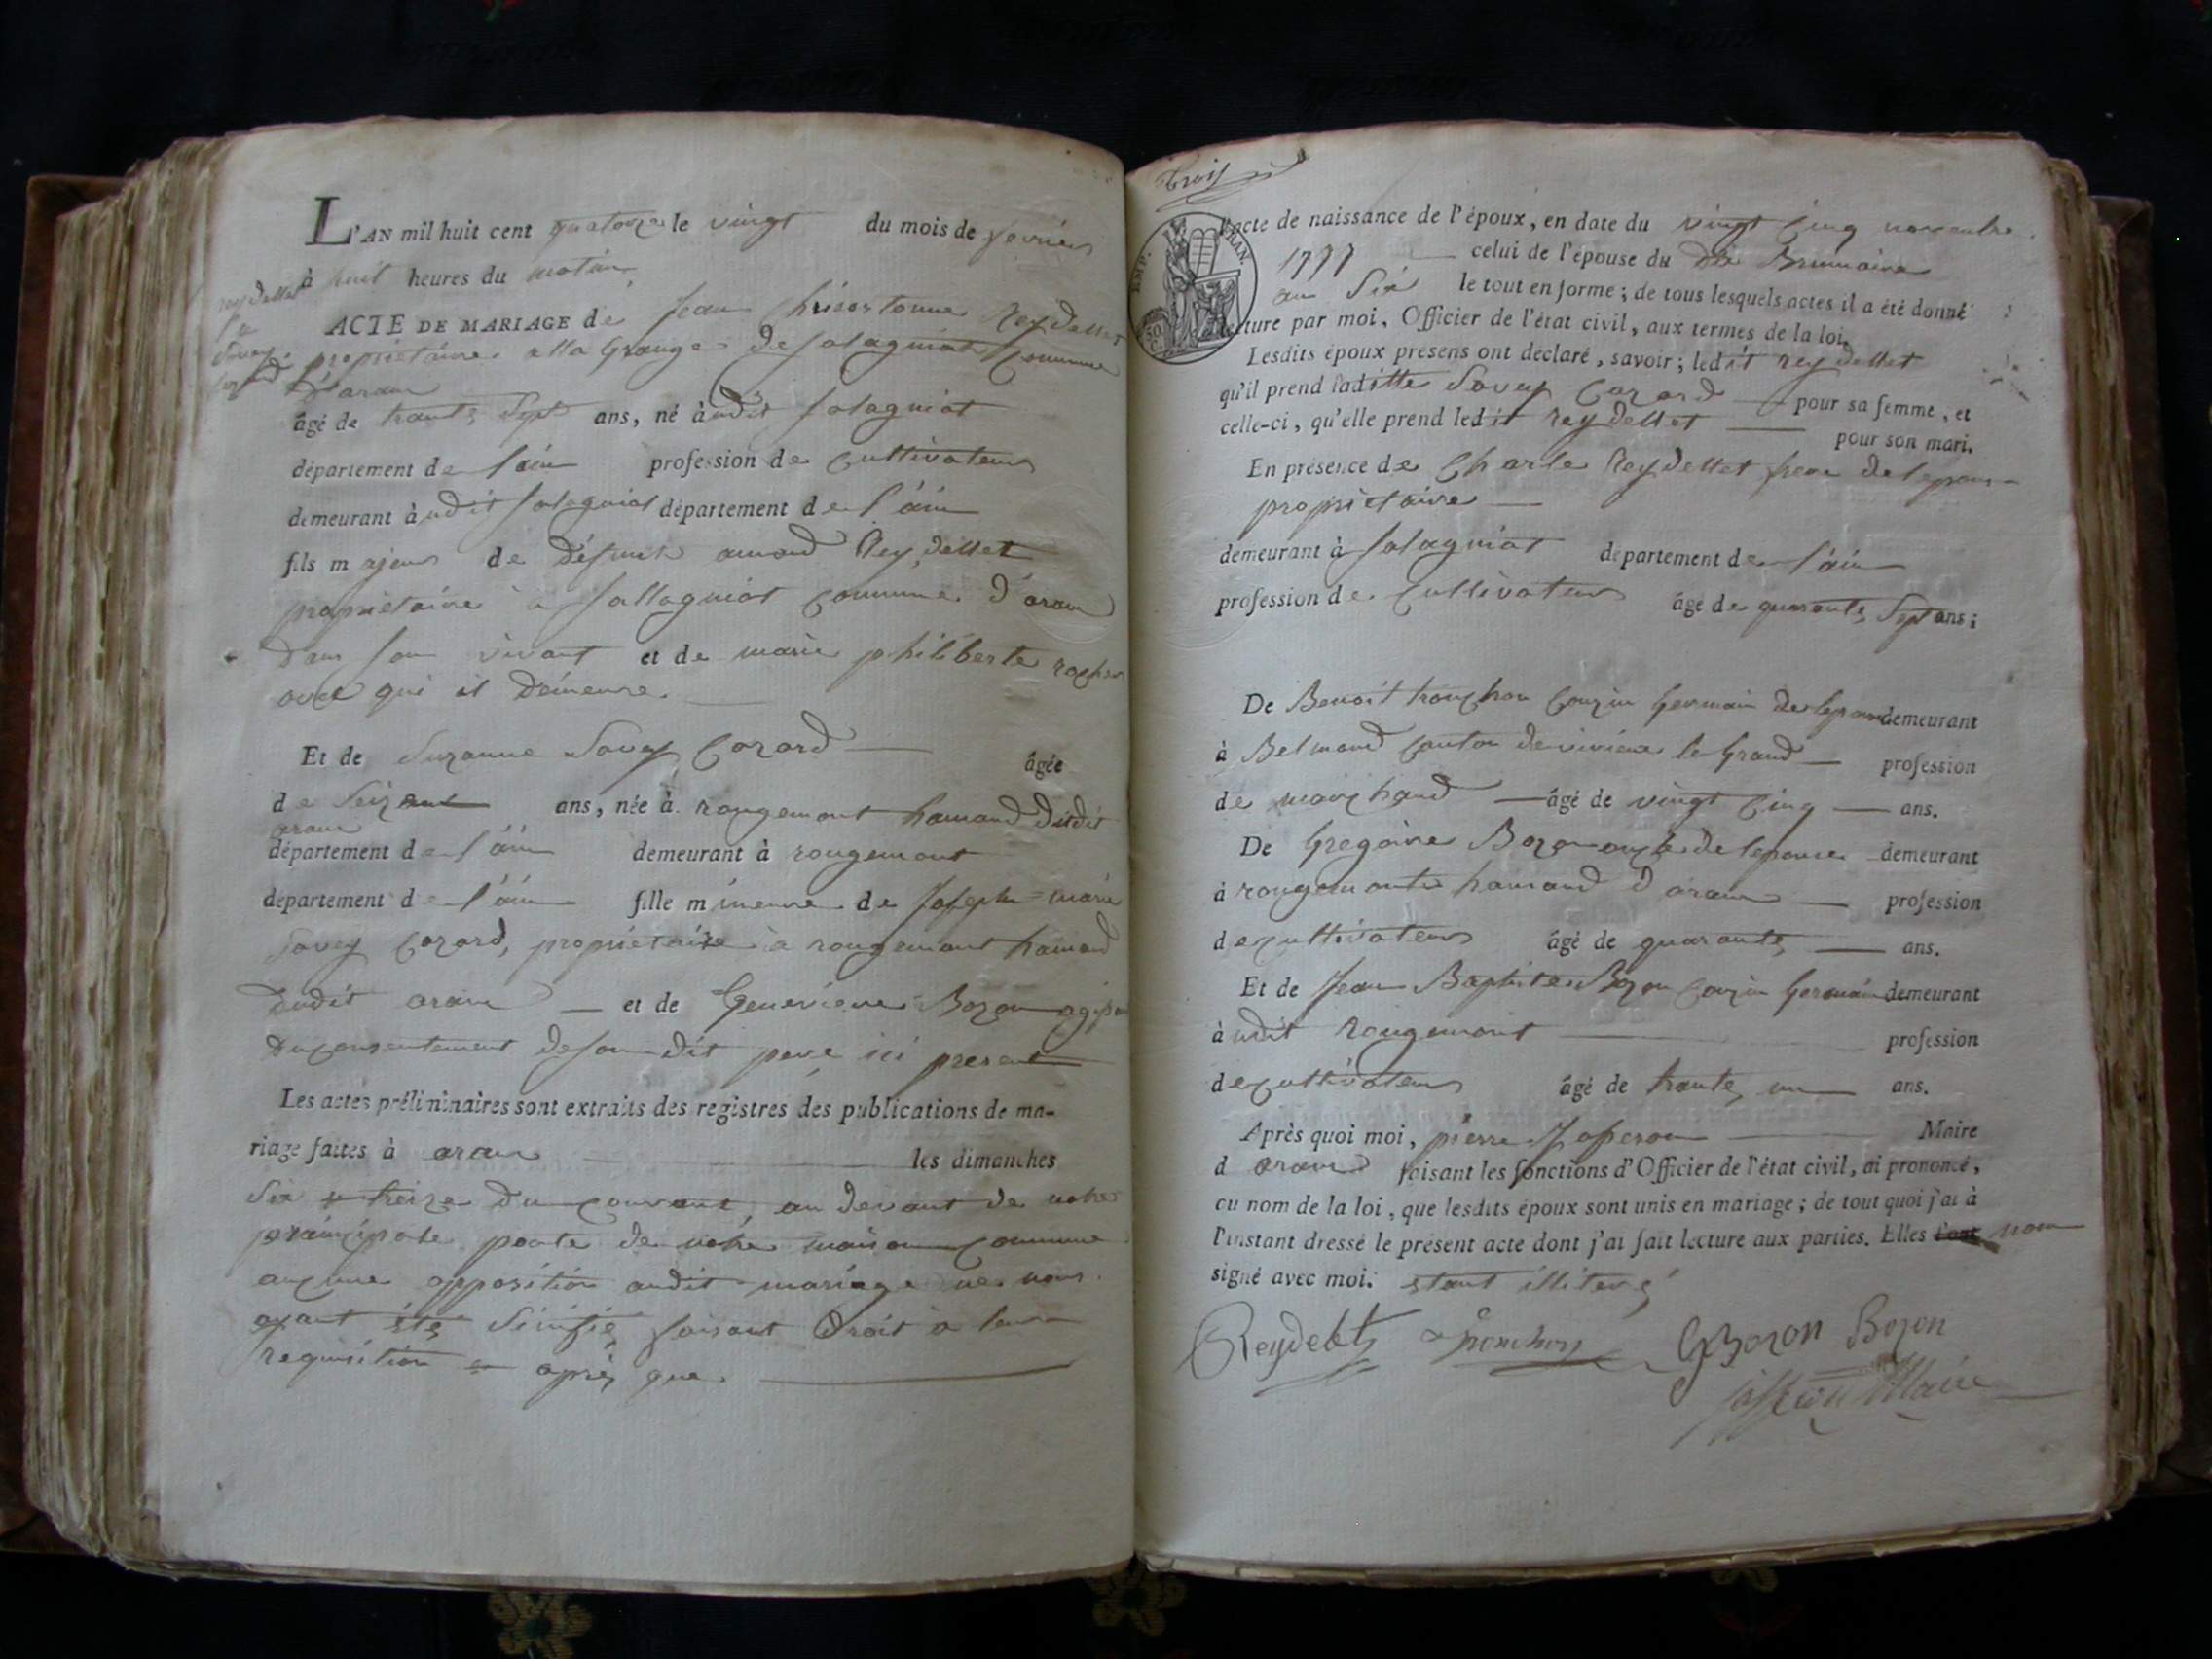 L'AN mil huit cent quatorze le vingt du mois de fevrier
à huit heures du matin
reydellet
Savey
ACTE DE MARIAGE de Jean Chrisostonne Reydellet
propriétaire a la Grange de salagniat Commune
D'aran
âgé de trante Sept ans, né àudit salagniat
département de l'ain profession de Cultivateur
demeurant àudit salagniat département de l'ain
fils majeur de Défunt amand Reydellet
propriétaire a sallagniat Commune d'aran
Dans son vivant et de marie philiberte
avec qui il Demeure.
Et de Suzanne Savey Cozard âgée
de Seize ans, née à rougemont hamaud dudit
aran
département de l'ain demeurant à rougemont
département de l'ain fille mineure de Joseph = marie
Savey Cozard, propriétaire a rougemont hamaud
Dudit aran et de Genevieve Bozon
Du consentement de son dit pere ici present
Les actes préliminaires sont extraits des registres des publications de ma-
riage faites à aran les dimanches
Six & treize Du courant, au devant de notre
principale porte de notre maison commune
aucune opposition audit mariage ne nous
ayant été Sinifié, faisant Droit a leur
requisition après que.
trois
EMP. FRAN.
50 C.
l'acte de naissance de l'époux, en date du vingt Cinq novembre
1777 celui de l'épouse du Brumaire
an Six le tout en forme; de tous lesquels actes il a été donné
lecture par moi, Officier de l'état civil, aux termes de la loi.
Lesdits époux présens ont déclaré, savoir; ledit reydellet
qu'il prend laditte Savey Cozard pour sa femme, et
celle-ci, qu'elle prend ledit reydellet pour son mari.
En présence de Charle Reydellet frere de lepoux
propriétaire
demeurant à salagniat département de l'ain
profession de Cultivateur âgé de quarante Sept ans;
De Benoit tronchon Couzin Germain de lepoux demeurant
à Belmond Canton de virieux le Grand profession
de marchand âgé de vingt Cinq ans.
De Gregoire Bozon oncle de lepouse demeurant
à rougemont hamaud d'aran profession
de cultivateur âgé de quarante ans.
Et de Jean Baptiste Bozon Couzin Germain demeurant
àudit Rougemont profession
de cultivateur âgé de trante un ans.
Après quoi moi, pierre Maire
d'aran faisant les fonctions d'Officier de l'état civil, ai prononcé,
au nom de la loi, que lesdits époux sont unis en mariage; de tout quoi j'ai à
l'instant dressé le présent acte dont j'ai fait lecture aux parties. Elles l'ont non
signé avec moi. etant illiteré
Reydelet Tronchon GBozon Bozon
Maire